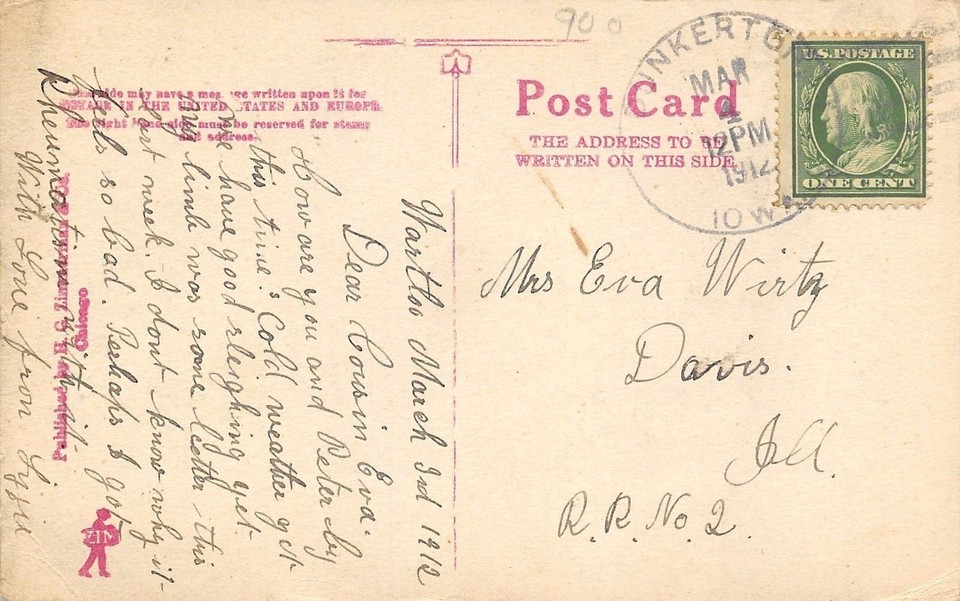 900
Post Card
THE ADDRESS TO BE
WRITTEN ON THIS SIDE
This side may have a message written upon it for
IN THE UNITED STATES AND EUROPE
The Right Hand side must be reserved for stamp
and address
INKERTO
MAR
12PM
1912
IOWA
U.S. POSTAGE
ONE CENT
Mrs Eva Wirtz
Davis.
Ill.
R.R. No. 2.
March 3rd 1912
Dear Cousin Eva.
How are you and Peter by
this time. Cold weather yet
We have good sleighing yet.
My limb was some better this
last week. I dont know why it
feels so bad. Perhaps I got
Rheumatism with it.
With Love from
Published by H. G. Zimmerman & Co.
Chicago
ZIM